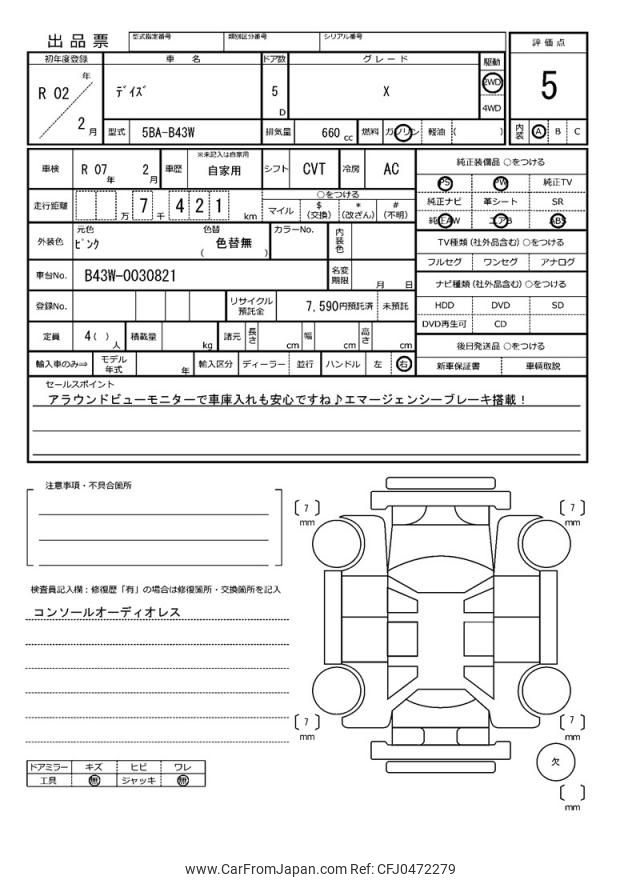 出品票 型式指定番号 類別区分番号 シリアル番号
評価点
5
内装 A B C
初年度登録 車名 ドア数 グレード 駆動
R 02 年 2 月
ﾃﾞｲｽﾞ 5 D X 2WD 4WD
型式 5BA-B43W 排気量 660 cc 燃料 ガソリン 軽油 ( )
車検 R 07 年 2 月 車歴 ※未記入は自家用 自家用 シフト CVT 冷房 AC
走行距離 万 7 千 4 2 1 km
○をつける
マイル $(交換) *(改ざん) #(不明)
外装色 元色 ﾋﾟﾝｸ 色替 色替無 ( ) カラーNo. 内装色
車台No. B43W-0030821 名変期限 月 日
登録No. リサイクル預託金 7,590円預託済 未預託
定員 4( ) 人 積載量 kg 諸元 長さ cm 幅 cm 高さ cm
輸入車のみ⇒ モデル年式 年 輸入区分 ディーラー 並行 ハンドル 左 右
純正装備品 ○をつける
PS PW 純正TV
純正ナビ 革シート SR
純正AW エアB ABS
TV種類(社外品含む)○をつける
フルセグ ワンセグ アナログ
ナビ種類(社外品含む)○をつける
HDD DVD SD
DVD再生可 CD
後日発送品 ○をつける
新車保証書 車輌取説
セールスポイント
アラウンドビューモニターで車庫入れも安心ですね♪エマージェンシーブレーキ搭載！
注意事項・不具合箇所
検査員記入欄：修復歴「有」の場合は修復箇所・交換箇所を記入
コンソールオーディオレス
ドアミラー キズ ヒビ ワレ
工具 無 ジャッキ 無
7 mm
7 mm
7 mm
7 mm
欠
mm
www.CarFromJapan.com Ref: CFJ0472279